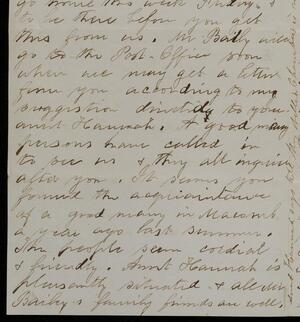 go home this week Friday &
to be there before you get
this from us. Mr Baily will
go to the Post-Office soon
when we may get a letter
from you according to my
suggestion directed to your
aunt Hannah. A good many
persons have called in
to see us & they all inquire
after you. It seems you
formed the acquaintance
of a good many in Macomb
a year ago last summer.
The people seem cordial
& friendly. Aunt Hannah is
pleasantly situated & all Mr
Bailey's family friends are well,